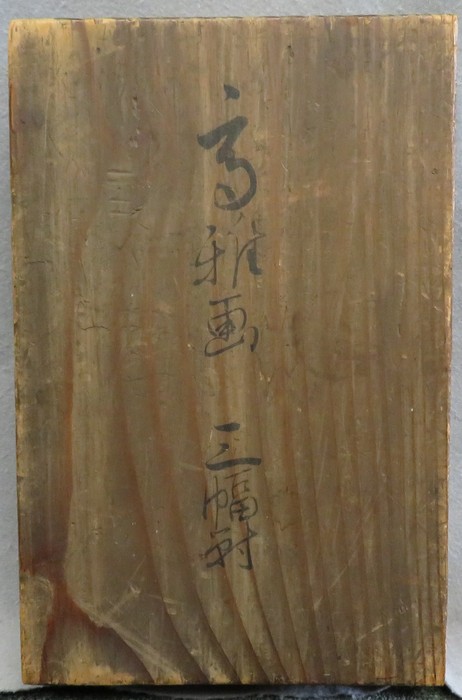 高雅画 三幅対